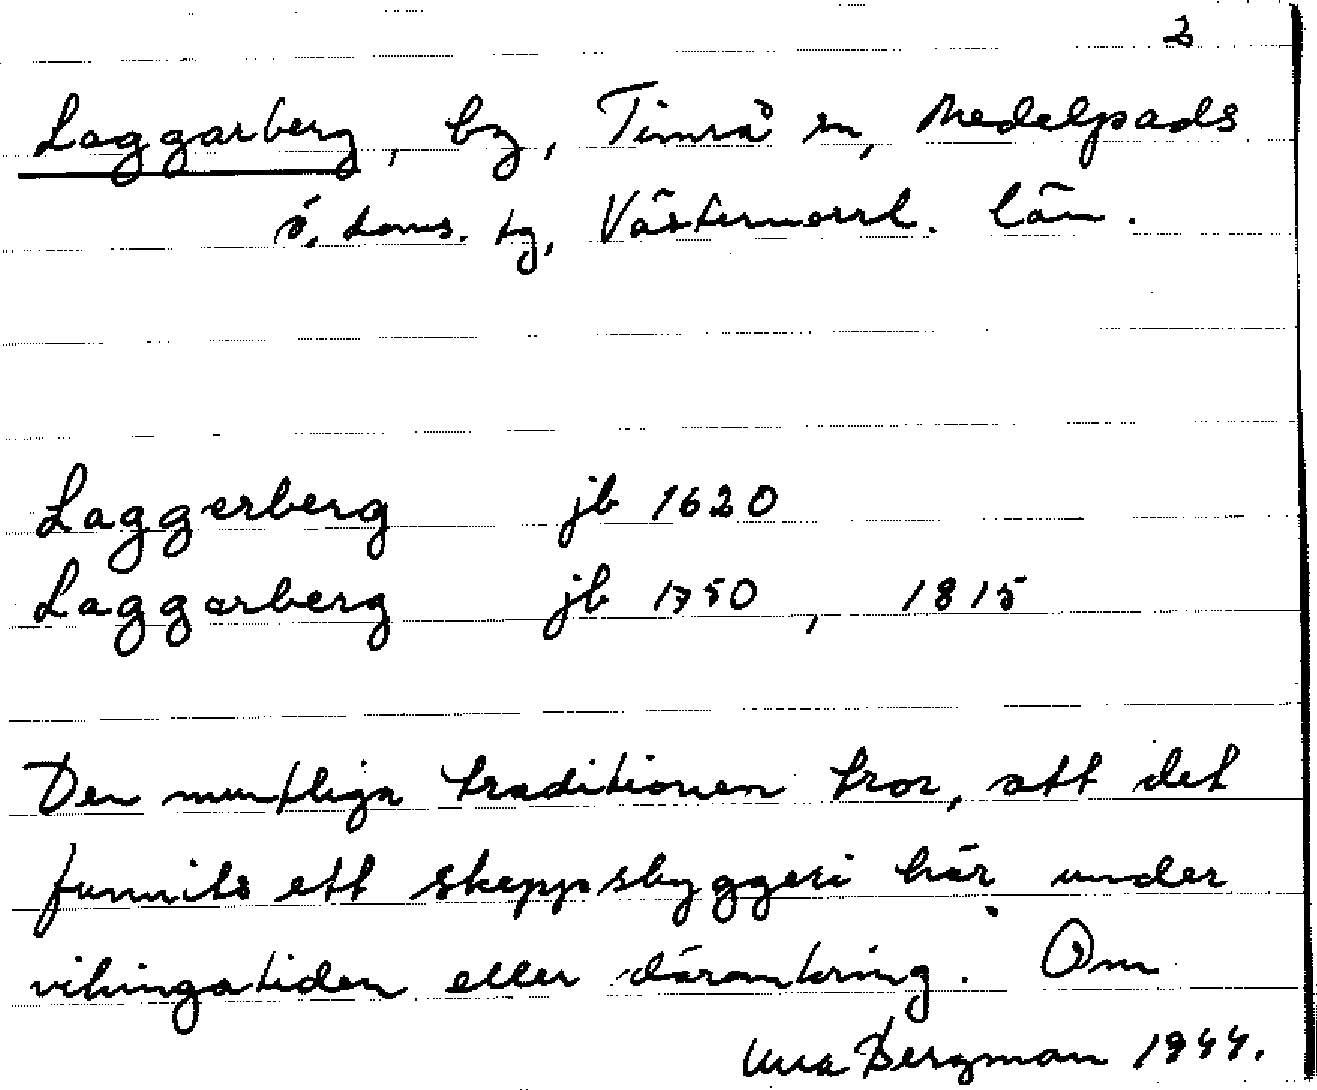 2
Laggarberg, by, Timrå sn, Medelpads
ö. doms. tg, Västernorrl. län.
Laggerberg jb 1620
Laggarberg jb 1750, 1815
Den muntliga traditionen tror, att det
funnits ett skeppsbyggeri här under
vikingatiden eller däromkring. Om
Bergman 1944.